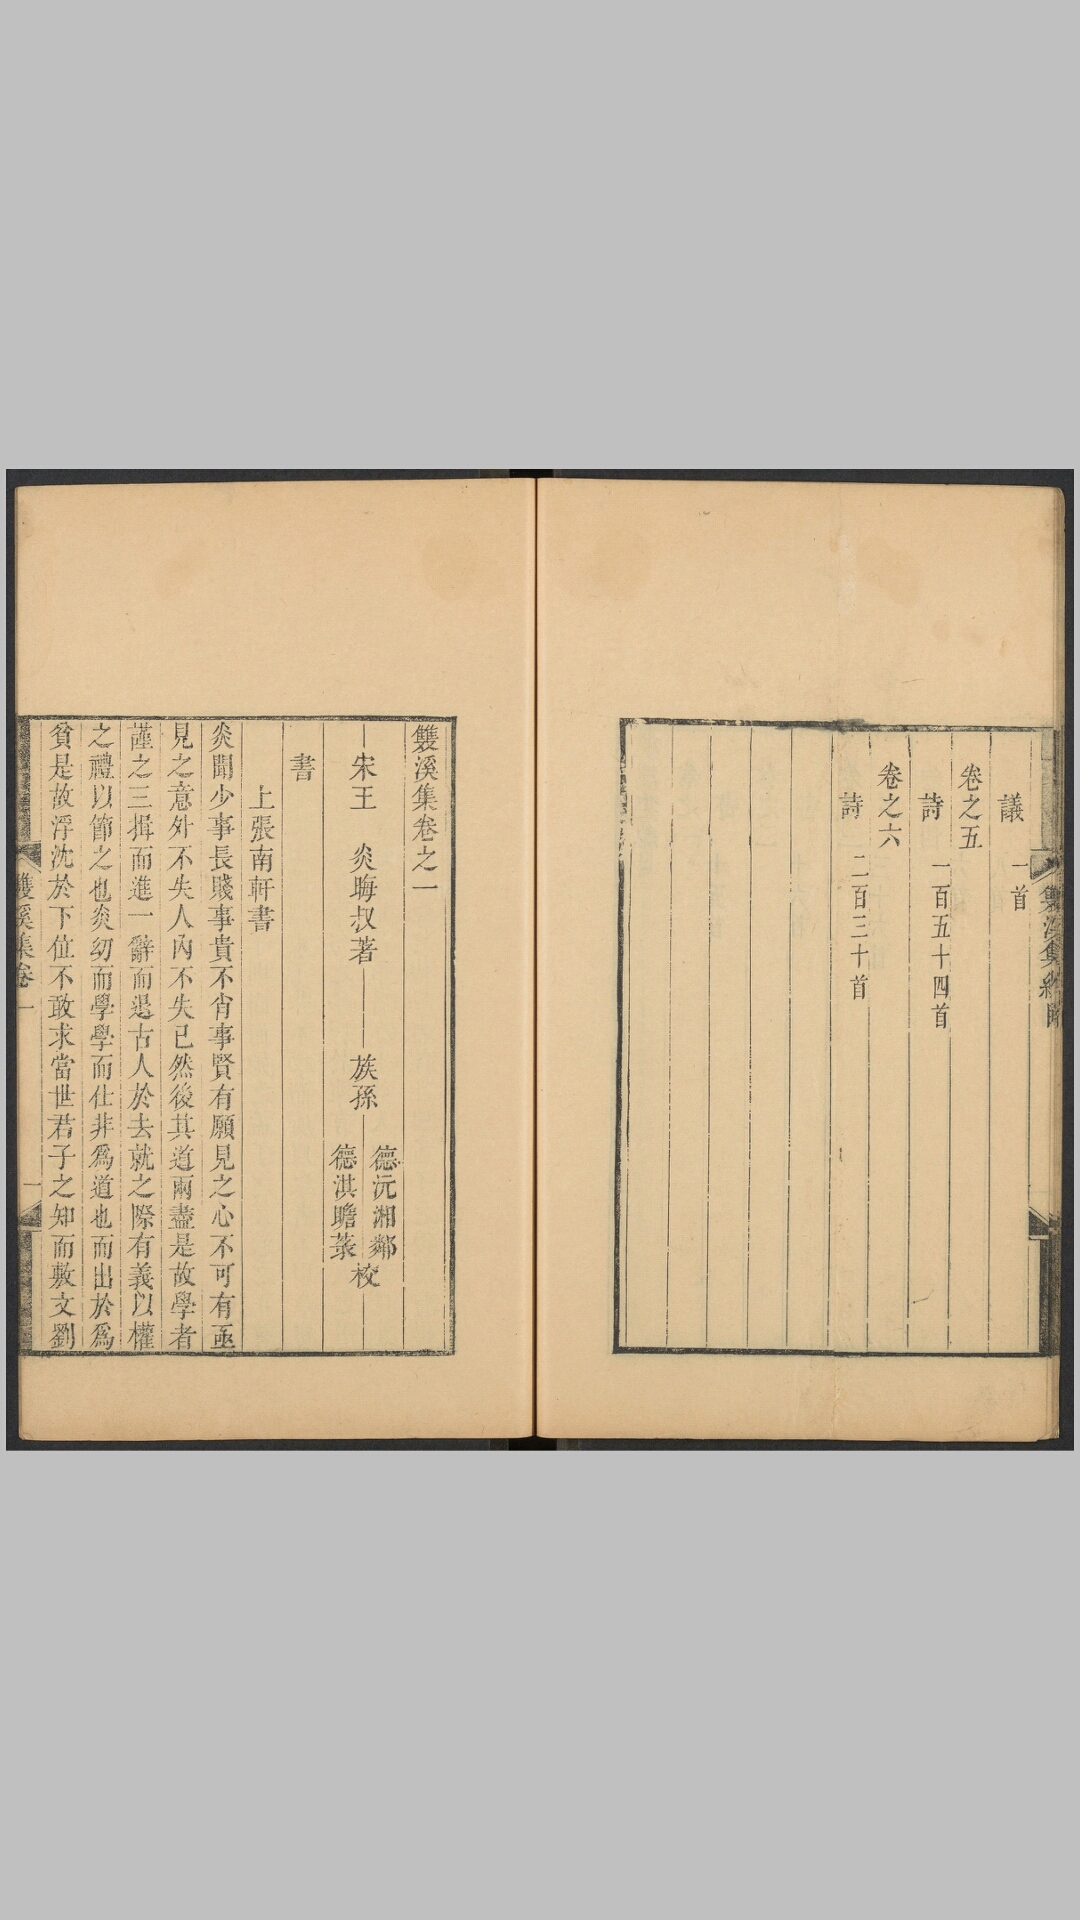 議 一首
卷之五
詩 一百五十四首
卷之六
詩 二百三十首
雙溪集卷之一
宋王 炎晦叔著 族孫 德沅湘鄰 德淇瞻菉 校
書
上張南軒書
炎聞少事長賤事貴不肖事賢有願見之心不可有亟
見之意外不失人內不失已然後其道兩盡是故學者
謹之三揖而進一辭而退古人於去就之際有義以權
之禮以節之也炎幼而學學而仕非爲道也而出於爲
貧是故浮沈於下位不敢求當世君子之知而敷文劉
雙溪集卷一 一